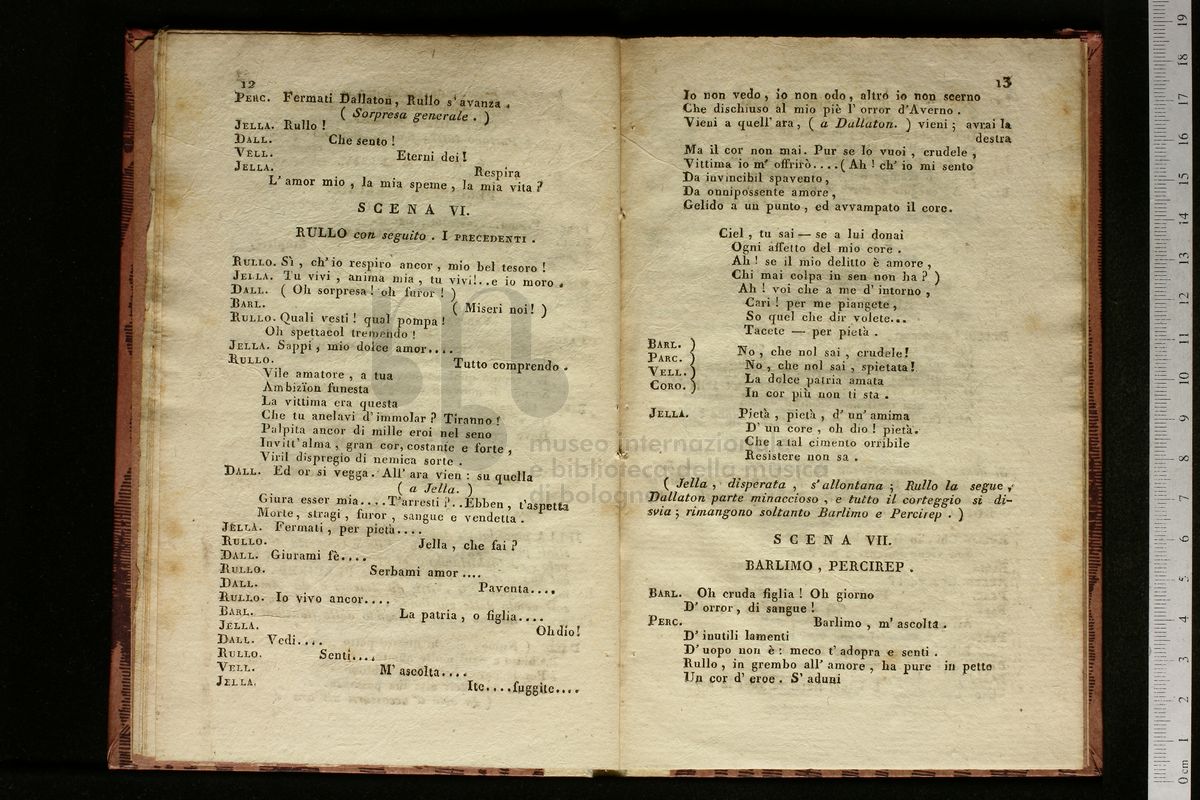 12
PERC. Fermati Dallaton, Rullo s'avanza.
( Sorpresa generale. )
JELLA. Rullo!
DALL. Che sento!
VELL. Eterni dei!
JELLA. Respira
L' amor mio, la mia speme, la mia vita?
SCENA VI.
RULLO con seguito. I PRECEDENTI.
RULLO. Sì, ch' io respiro ancor, mio bel tesoro!
JELLA. Tu vivi, anima mia, tu vivi!..e io moro.
DALL. ( Oh sorpresa! oh furor! )
BARL. ( Miseri noi! )
RULLO. Quali vesti! qual pompa!
Oh spettacol tremendo!
JELLA. Sappi, mio dolce amor....
RULLO. Tutto comprendo.
Vile amatore, a tua
Ambizïon funesta
La vittima era questa
Che tu anelavi d'immolar? Tiranno!
Palpita ancor di mille eroi nel seno
Invitt'alma, gran cor, costante e forte,
Viril dispregio di nemica sorte.
DALL. Ed or si vegga. All' ara vien: su quella
( a Jella. )
Giura esser mia....T'arresti?..Ebben, t'aspetta
Morte, stragi, furor, sangue e vendetta.
JELLA. Fermati, per pietà....
RULLO. Jella, che fai?
DALL. Giurami fè....
RULLO. Serbami amor....
DALL. Paventa....
RULLO. Io vivo ancor....
BARL. La patria, o figlia....
JELLA. Oh dio!
DALL. Vedi....
RULLO. Senti....
VELL. M' ascolta....
JELLA. Ite....fuggite....
13
Io non vedo, io non odo, altro io non scerno
Che dischiuso al mio piè l' orror d'Averno.
Vieni a quell' ara, ( a Dallaton. ) vieni; avrai la
destra
Ma il cor non mai. Pur se lo vuoi, crudele,
Vittima io m' offrirò....( Ah! ch' io mi sento
Da invincibil spavento,
Da onnipossente amore,
Gelido a un punto, ed avvampato il core.
Ciel, tu sai — se a lui donai
Ogni affetto del mio core.
Ah! se il mio delitto è amore,
Chi mai colpa in sen non ha? )
Ah! voi che a me d' intorno,
Cari! per me piangete,
So quel che dir volete...
Tacete — per pietà.
BARL. ) No, che nol sai, crudele!
PARC. ) No, che nol sai, spietata!
VELL. ) La dolce patria amata
CORO. ) In cor più non ti sta.
JELLA. Pietà, pietà, d' un' amima
D' un core, oh dio! pietà.
Che a tal cimento orribile
Resistere non sa.
( Jella, disperata, s' allontana; Rullo la segue,
Dallaton parte minaccioso, e tutto il corteggio si di-
svia; rimangono soltanto Barlimo e Percirep. )
SCENA VII.
BARLIMO, PERCIREP.
BARL. Oh cruda figlia! Oh giorno
D' orror, di sangue!
PERC. Barlimo, m' ascolta.
D' inutili lamenti
D' uopo non è: meco t' adopra e senti.
Rullo, in grembo all' amore, ha pure in petto
Un cor d' eroe. S' aduni
museo internazionale
e biblioteca della musica
di bologna
0 cm 1 2 3 4 5 6 7 8 9 10 11 12 13 14 15 16 17 18 19